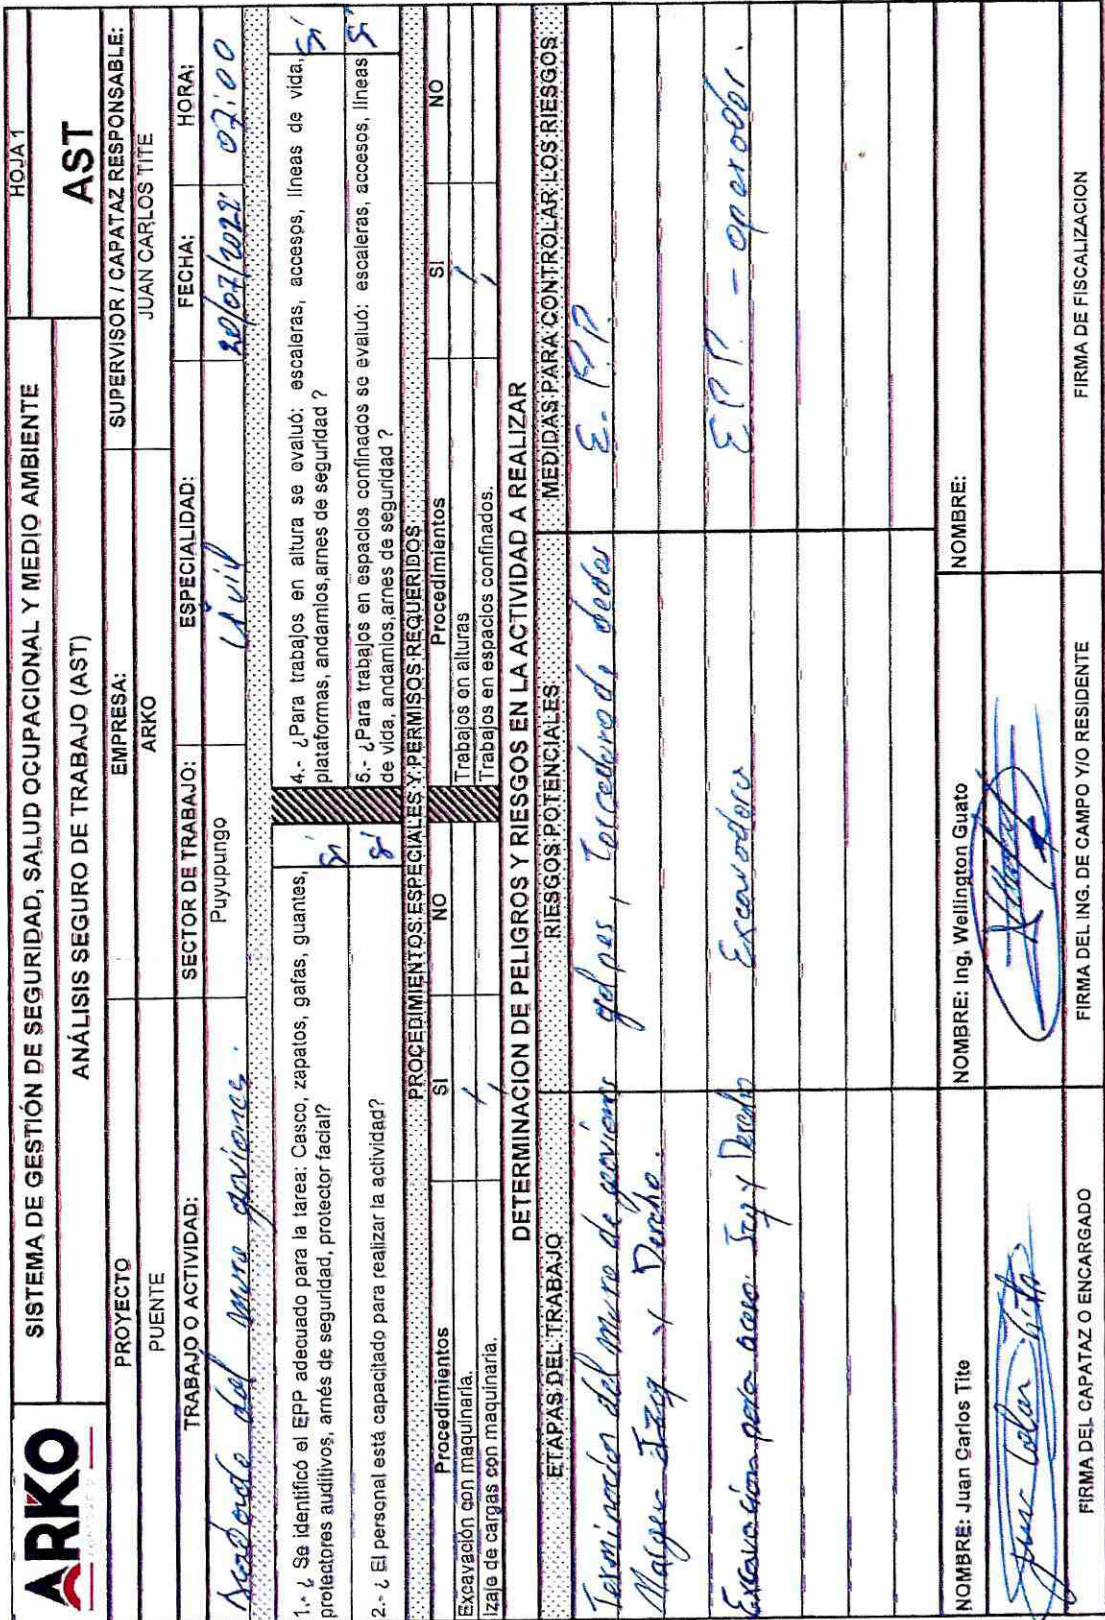 ARKO
SISTEMA DE GESTIÓN DE SEGURIDAD, SALUD OCUPACIONAL Y MEDIO AMBIENTE
HOJA 1
ANÁLISIS SEGURO DE TRABAJO (AST)
AST
PROYECTO
EMPRESA:
SUPERVISOR / CAPATAZ RESPONSABLE:
PUENTE
ARKO
JUAN CARLOS TITE
TRABAJO O ACTIVIDAD:
SECTOR DE TRABAJO:
ESPECIALIDAD:
FECHA:
HORA:
del muro gaviones.
Puyupungo
Civil
20/07/2022
07:00
1.- ¿ Se identificó el EPP adecuado para la tarea: Casco, zapatos, gafas, guantes,
protectores auditivos, arnés de seguridad, protector facial?
Sí
4.- ¿Para trabajos en altura se evaluó: escaleras, accesos, líneas de vida,
plataformas, andamios,arnes de seguridad ?
Sí
2.- ¿ El personal está capacitado para realizar la actividad?
Sí
5.- ¿Para trabajos en espacios confinados se evaluó: escaleras, accesos, líneas
de vida, andamios,arnes de seguridad ?
Sí
PROCEDIMIENTOS ESPECIALES Y PERMISOS REQUERIDOS
Procedimientos
SI
NO
Procedimientos
SI
NO
Excavación con maquinaria.
/
Trabajos en alturas
/
Izaje de cargas con maquinaria.
/
Trabajos en espacios confinados.
/
DETERMINACION DE PELIGROS Y RIESGOS EN LA ACTIVIDAD A REALIZAR
ETAPAS DEL TRABAJO
RIESGOS POTENCIALES
MEDIDAS PARA CONTROLAR LOS RIESGOS
Terminación del muro de gaviones
golpes, Torcedura de dedos
E. P.P.
Margen Izq y Derecho.
Excavación para acceso Izq y Derecho
Excavadora
EPP - operador.
NOMBRE: Juan Carlos Tite
NOMBRE: Ing, Wellington Guato
NOMBRE:
FIRMA DEL CAPATAZ O ENCARGADO
FIRMA DEL ING. DE CAMPO Y/O RESIDENTE
FIRMA DE FISCALIZACION